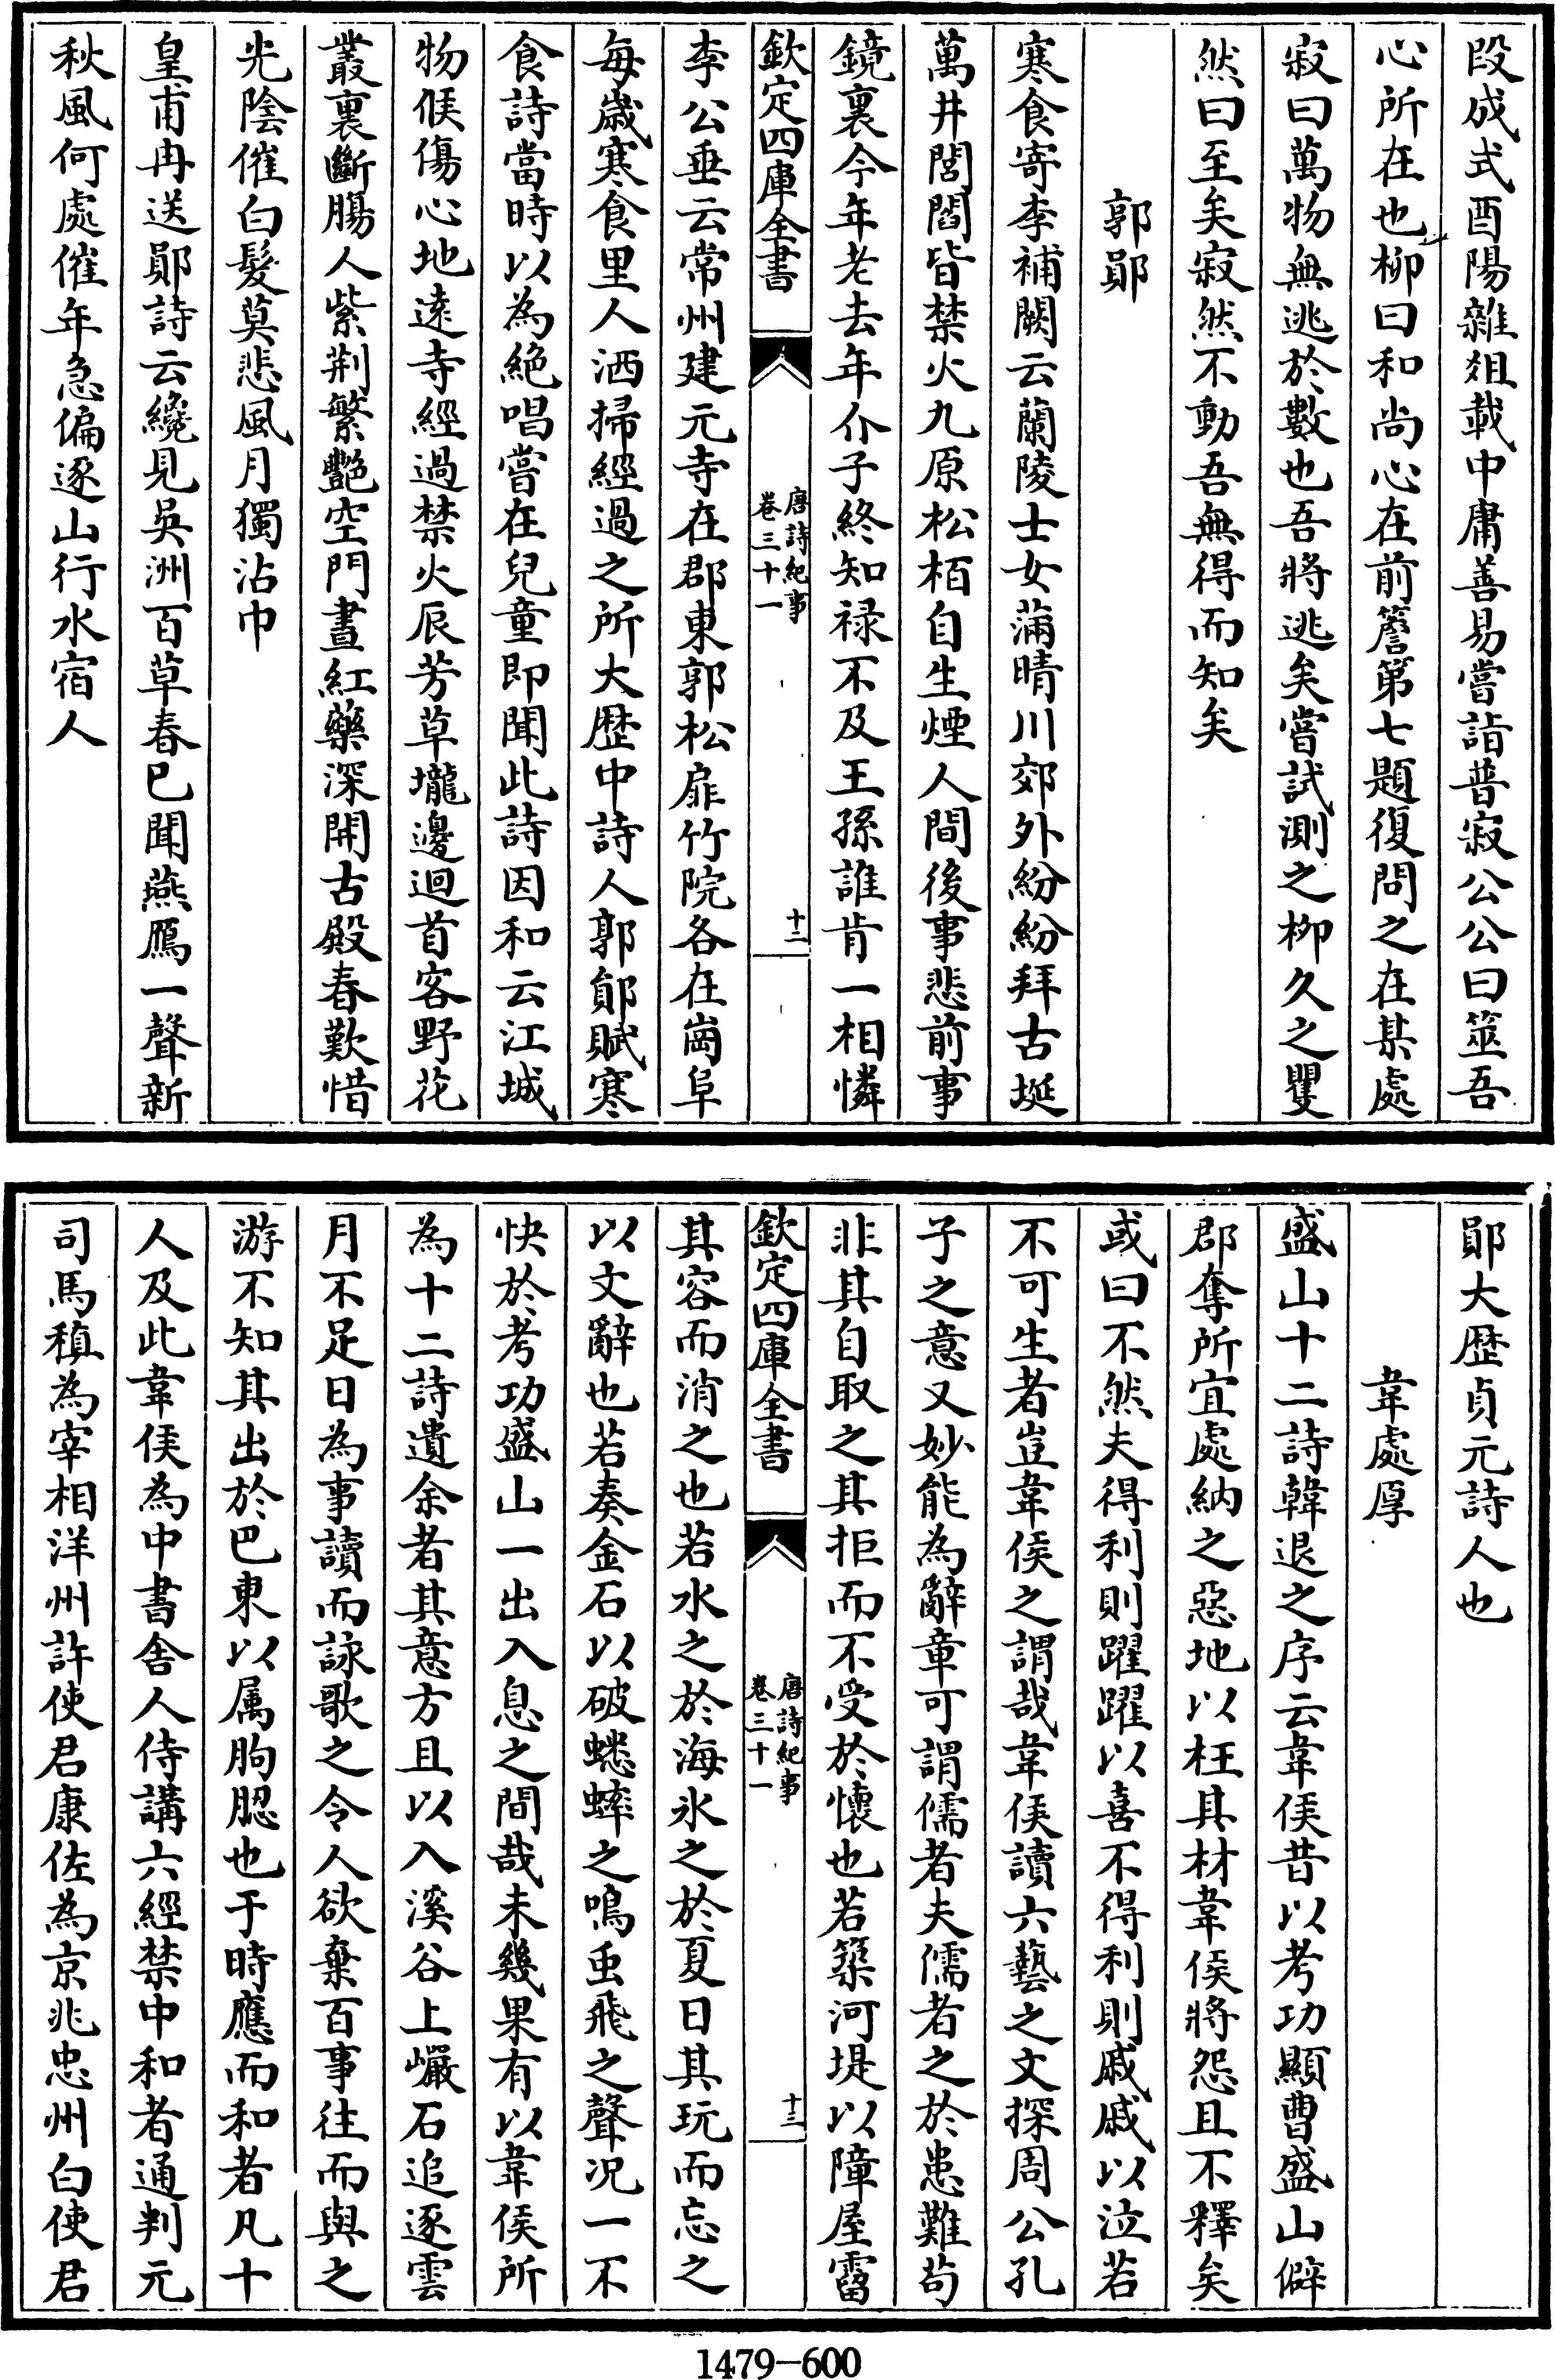 段成式酉陽雜俎載中庸善易嘗詣普寂公公曰筮吾
心所在也柳曰和尚心在前簷第七題復問之在某處
寂曰萬物無逃於數也吾將逃矣嘗試測之柳久之瞿
然曰至矣寂然不動吾無得而知矣
郭鄖
寒食寄李補闕云蘭陵士女滿晴川郊外紛紛拜古埏
萬井閭閻皆禁火九原松栢自生煙人間後事悲前事
鏡裏今年老去年介子終知禄不及王孫誰肯一相憐
欽定四庫全書
唐詩紀事
卷三十一
十二
李公垂云常州建元寺在郡東郭松扉竹院各在崗阜
每歳寒食里人洒掃經過之所大歴中詩人郭鄖賦寒
食詩當時以為絶唱嘗在兒童即聞此詩因和云江城
物候傷心地逺寺經過禁火辰芳草壠邊迴首客野花
叢裏斷膓人紫荆繁艷空門晝紅藥深開古殿春歎惜
光陰催白髮莫悲風月獨沾巾
皇甫冉送鄖詩云纔見吳洲百草春已聞燕鴈一聲新
秋風何處催年急偏逐山行水宿人
鄖大歴貞元詩人也
韋處厚
盛山十二詩韓退之序云韋侯昔以考功顯曹盛山僻
郡奪所宜處納之惡地以枉其材韋侯將怨且不釋矣
或曰不然夫得利則躍躍以喜不得利則戚戚以泣若
不可生者豈韋侯之謂哉韋侯讀六藝之文探周公孔
子之意又妙能為辭章可謂儒者夫儒者之於患難茍
非其自取之其拒而不受於懷也若築河堤以障屋霤
欽定四庫全書
唐詩紀事
卷三十一
十三
其容而消之也若水之於海氷之於夏日其玩而忘之
以文辭也若奏金石以破蟋蟀之鳴虫飛之聲况一不
快於考功盛山一出入息之間哉未幾果有以韋侯所
為十二詩遺余者其意方且以入溪谷上巖石追逐雲
月不足日為事讀而詠歌之令人欲棄百事往而與之
游不知其出於巴東以属朐䏰也于時應而和者凡十
人及此韋侯為中書舍人侍講六經禁中和者通判元
司馬稹為宰相洋州許使君康佐為京兆忠州白使君
1479-600